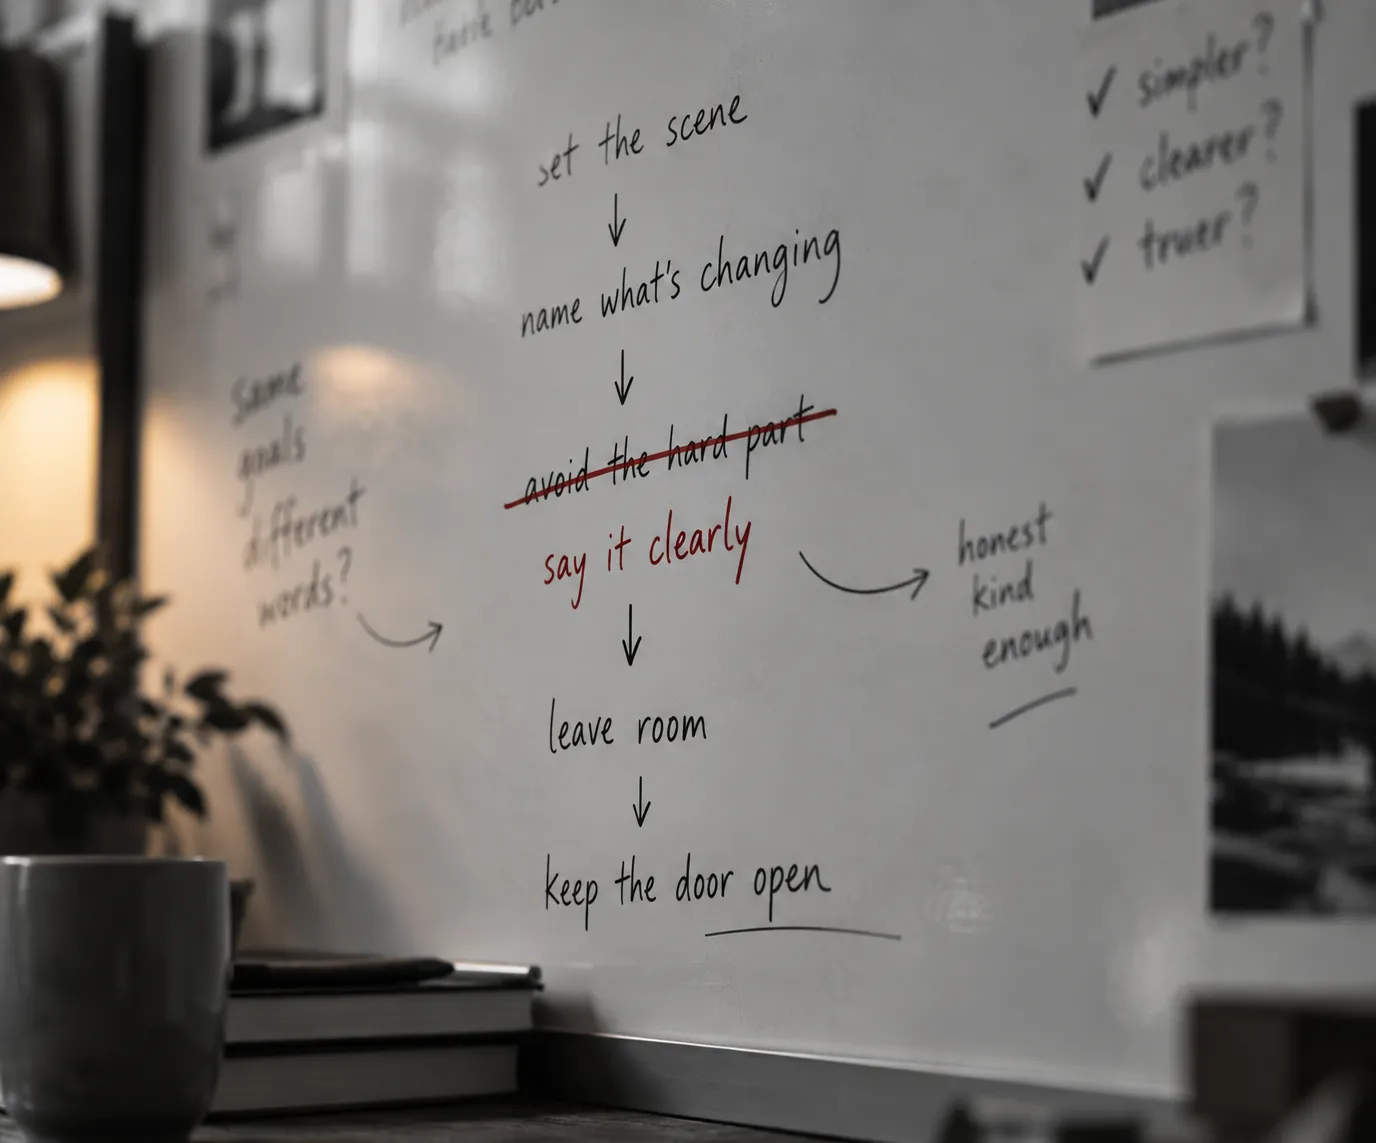 set the scene
↓
name what's changing
↓
avoid the hard part
say it clearly
↓
leave room
↓
keep the door open
Same
goals
different
words?
honest
kind
enough
✓ simpler?
✓ clearer?
✓ truer?